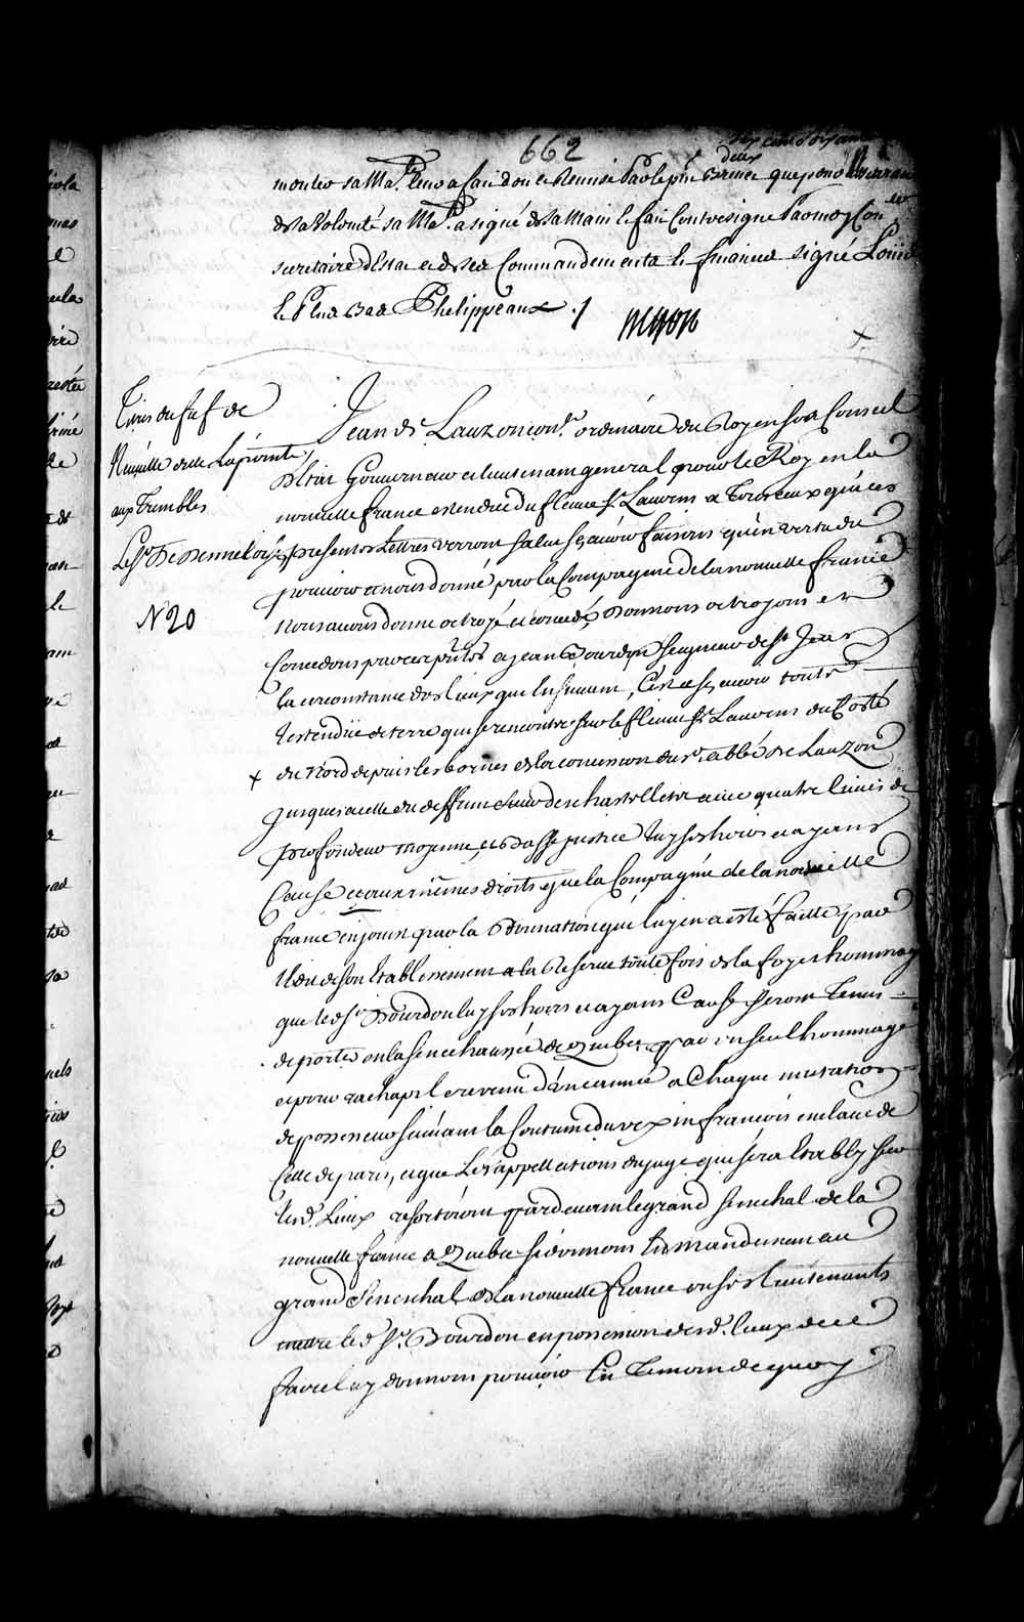 662
deux
monter sa Ma.té leur a fait don et Remise par le p.nt Brevet que pour
de sa Volonté sa Ma.té a signé de sa Main et fait Contresigner par moy Con.er
secretaire d'Estat et de ses Commandements et finances signé Louis
et Plus bas Phelippeaux ./.
Titres du fief de
Neuville de la pointe
aux Trembles
N 20
Jean de Lauzon con.er ordinaire du Roy en son Conseil
d'Etat Gouverneur et lieutenant general pour le Roy en la
nouvelle france etendue du fleuve S.t Laurens a Tous ceux qui ces
presentes Lettres verront salut sçavoir faisons qu'en vertu du
pouvoir a nous donné par la Compagnie de la nouvelle france
nous avons donné octroyé et concedé, Donnons octroyons et
Concedons par ces p.ntes a jean Bourdon seigneur de S.t Jean
la circonstance des lieux qui ensuivent, C'est a sçavoir toute
l'estendüe de terre qui se rencontre sur le fleuve S.t Laurens du Costé
du Nord depuis les bornes de la concession du S.r abbé de Lauzon
jusques a celle du deffunt sieur de chastelletz avec quatre lieües de
profondeur moyenne, et basse justice luy ses hoirs et ayans
Cause et aux mêmes droits que la Compagnie de la nouvelle
france en jouit par la Donnation qui luy en a esté faitte par
l'Edit de son Etablissement a la Reserve toute fois de la foy et hommage
que led. S.r Bourdon luy ses hoirs et ayans Cause seront Tenus
de porter en la senechaussée de Quebec par un seul hommage
et pour rachapt le revenu d'une année a Chaque mutation
de possesseur suivant la Coutume du vexin françois enclavé de
Celle de paris, et que les appellations du juge qui sera Etably sur
lesd. Lieux resortiront pardevant le grand senechal de la
nouvelle france a Quebec si donnons En mandement au
grand Senechal de la nouvelle france ou ses lieutenants
mettre led. S.r Bourdon en possession desd. lieux de ce
faire luy donnons pouvoir En Temoin de quoy